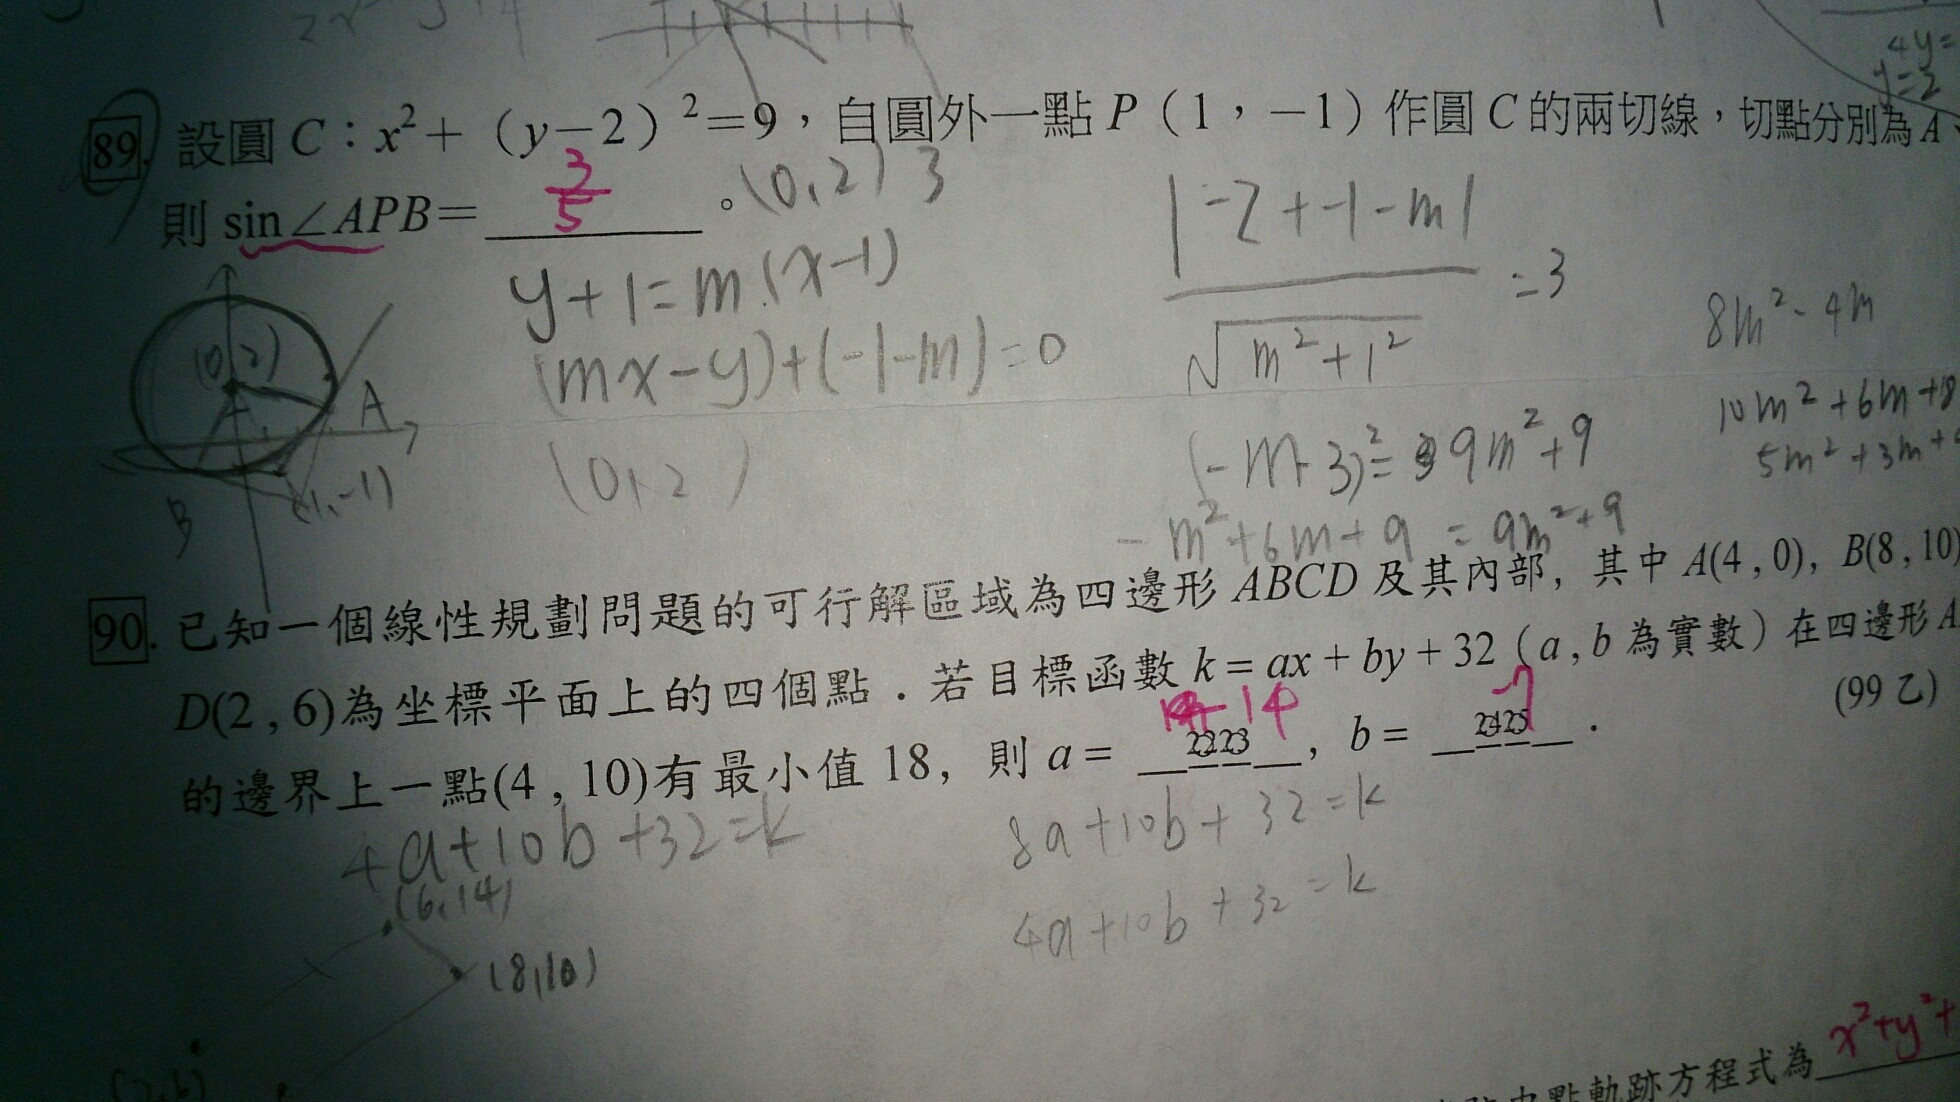 4y=
y=2
89. 設圓 C：x²+（y−2）²=9，自圓外一點 P（1，−1）作圓 C 的兩切線，切點分別為 A、
則 sin∠APB= 3/5 。
(0,2) 3
y+1=m(x-1)
(mx-y)+(-1-m)=0
(0,2)
|-2+-1-m| / √m²+1² =3
8m²-4m
(-m-3)²=9m²+9
10m²+6m+18
5m²+3m+
-m²+6m+9 = 9m²+9
(0,2)
A
B
(1,-1)
90. 已知一個線性規劃問題的可行解區域為四邊形 ABCD 及其內部，其中 A(4,0)，B(8,10)
D(2,6)為坐標平面上的四個點．若目標函數 k=ax+by+32（a,b 為實數）在四邊形 A
的邊界上一點(4,10)有最小值 18，則 a= 22 23 ，b= 24 25 ．
(99 乙)
-14
-7
4a+10b+32=k
8a+10b+32=k
4a+10b+32=k
(6,14)
(8,10)
(2,6)
中點軌跡方程式為
x²+y²+